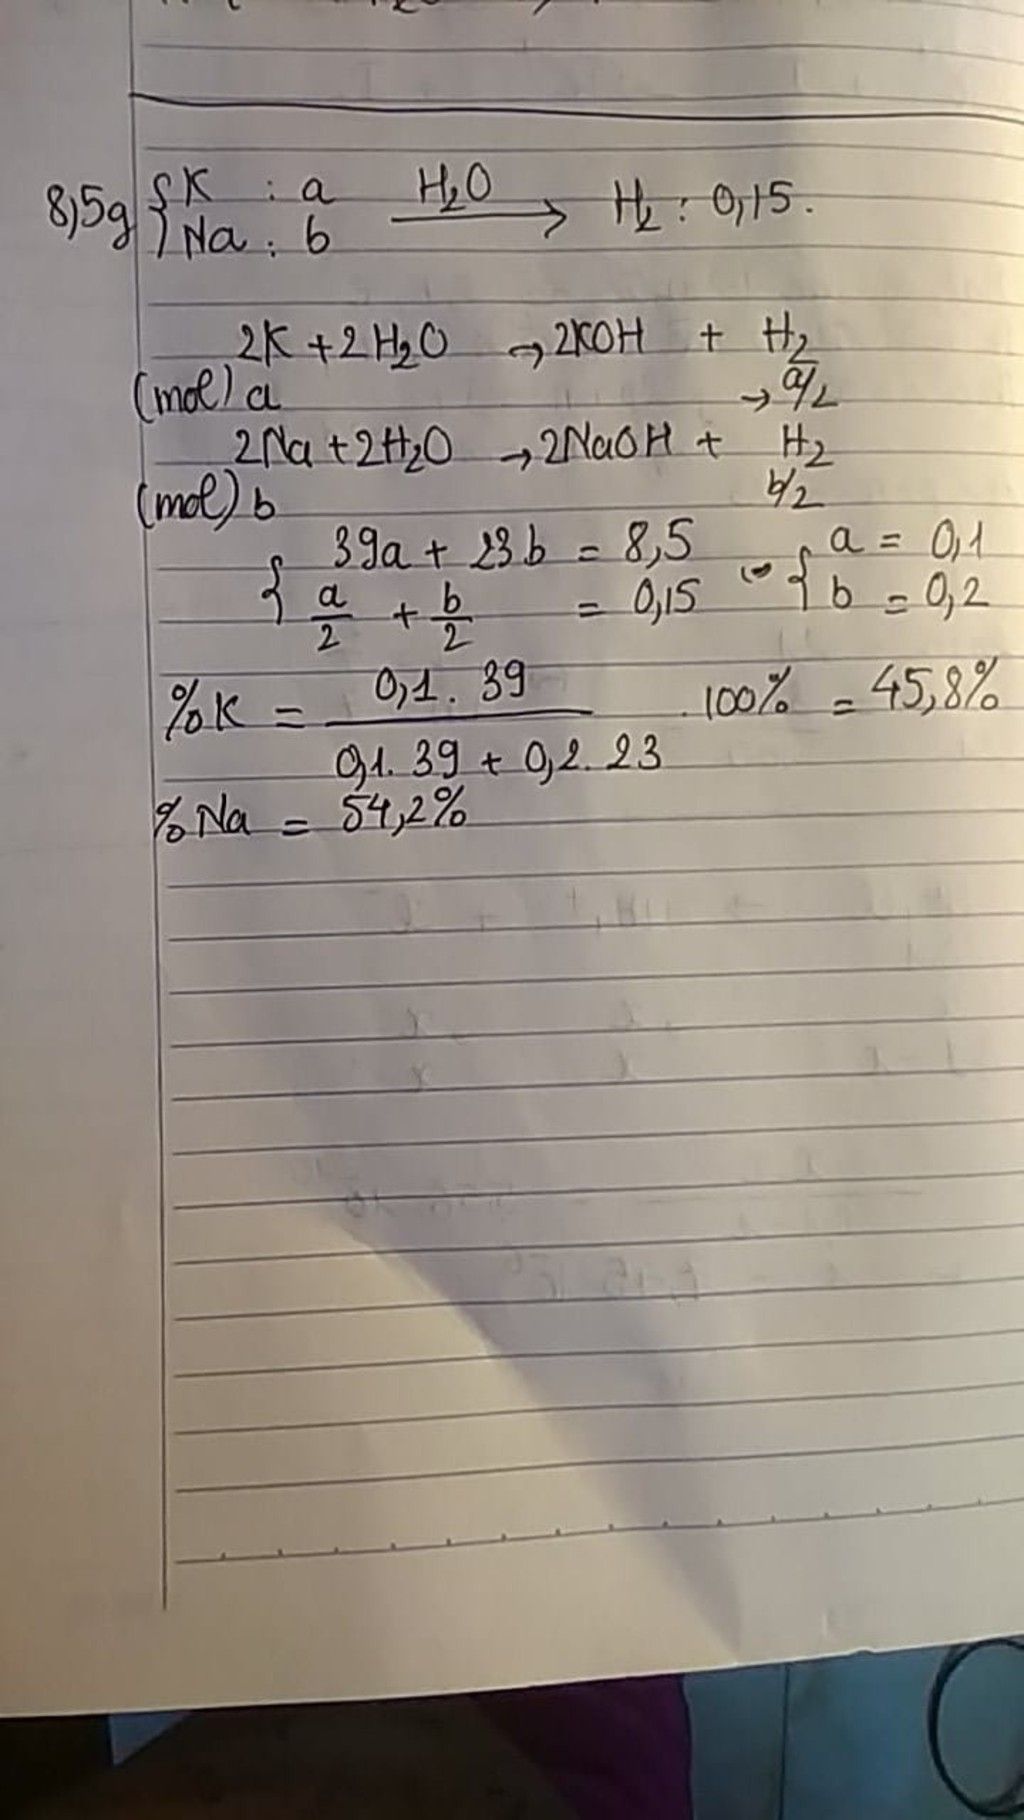 8,5g { K : a H₂O → H₂ : 0,15.
Na : b
2K + 2H₂O → 2KOH + H₂
(mol) a → a/2
2Na + 2H₂O → 2NaOH + H₂
(mol) b b/2
{ 39a + 23b = 8,5 { a = 0,1
a/2 + b/2 = 0,15 b = 0,2
%K = 0,1. 39 / 0,1. 39 + 0,2. 23 . 100% = 45,8%
%Na = 54,2%